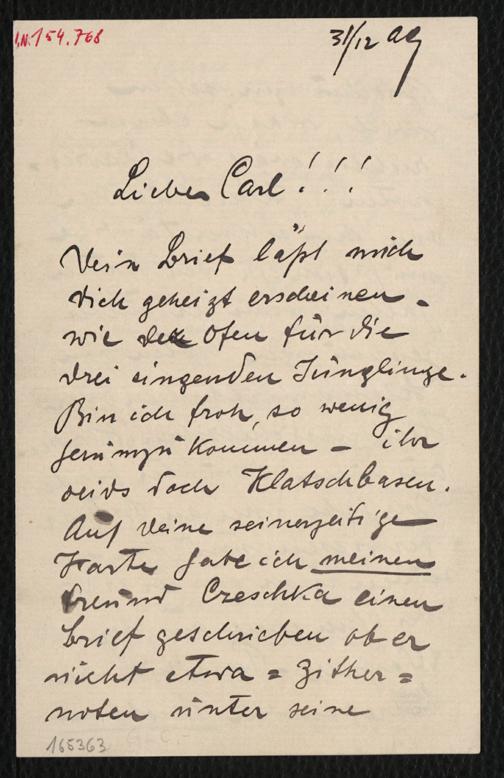 I.N. 154.768
31/12 09
Lieber Carl!!!
Dein Brief läßt mich
dich geheizt erscheinen -
wie den Ofen für die
drei singenden Jünglinge.
Bin ich froh, so wenig
herumzukommen - ihr
seids doch Klatschbasen.
Auf deine seinerzeitige
Karte habe ich meinen
Freund Czeschka einen
Brief geschrieben ob er
nicht etwa = Zither =
noten unter seine
165363